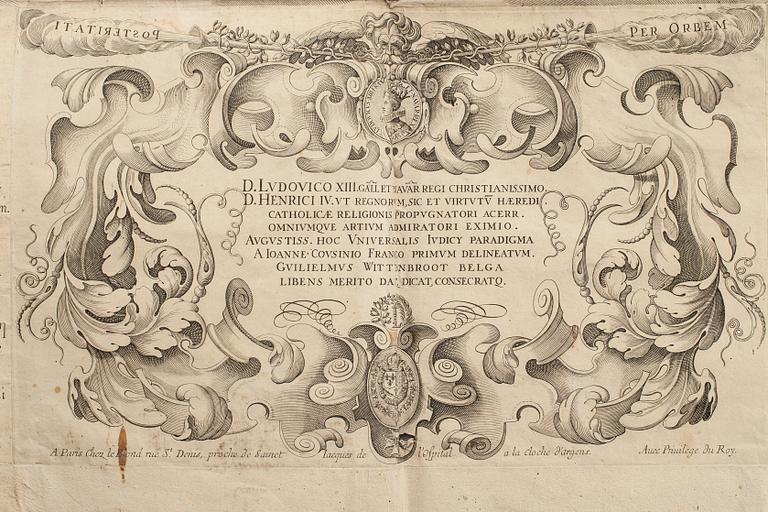 POSTERITATI
PER ORBEM
D. LVDOVICO XIII. GALL. ET NAVAR REGI CHRISTIANISSIMO.
D. HENRICI IV. VT REGNORVM, SIC ET VIRTUTŪ HÆREDI
CATHOLICÆ RELIGIONIS PROPVGNATORI ACERR.
OMNIVMQVE ARTIVM ADMIRATORI EXIMIO.
AVGVSTISS. HOC VNIVERSALIS IVDICY PARADIGMA
A IOANNE COVSINIO FRANCO PRIMVM DELINEATVM.
GVILIELMVS WITTENBROOT BELGA
LIBENS MERITO DAT, DICAT, CONSECRATQ.
A Paris Chez le Blond rue St. Denis, proche de Sainct Iacques de l'Ospital a la cloche d'argent. Avec Privilege du Roy.